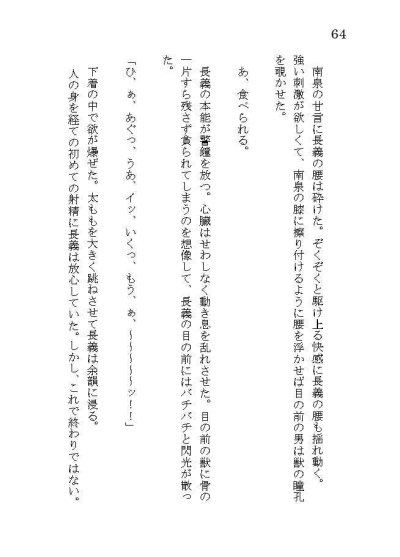 64
南泉の甘言に長義の腰は砕けた。ぞくぞくと駆け上る快感に長義の腰も揺れ動く。
強い刺激が欲しくて、南泉の膝に擦り付けるように腰を浮かせば目の前の男は獣の瞳孔
を覗かせた。
あ、食べられる。
長義の本能が警鐘を放つ。心臓はせわしなく動き息を乱れさせた。目の前の獣に骨の
一片すら残さず貪られてしまうのを想像して、長義の目の前にはバチバチと閃光が散っ
た。
「ひ、ぁ、あぐっ、うあ、イッ、いくっ、もう、ぁ、～～～～～ッ！！」
下着の中で欲が爆ぜた。太ももを大きく跳ねさせて長義は余韻に浸る。
人の身を経ての初めての射精に長義は放心していた。しかし、これで終わりではない。